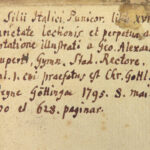 Silii Italici Punicor. libri XVI
varietate lectionis et perpetua a
notatione illustrati a Geo. Alexan
Ruperti, Gymn. Stad. Rectore.
Vol. I. cui praefatus est Chr. Gottl.
Heyne Göttingae 1795. 8. mai
et 628. paginar.